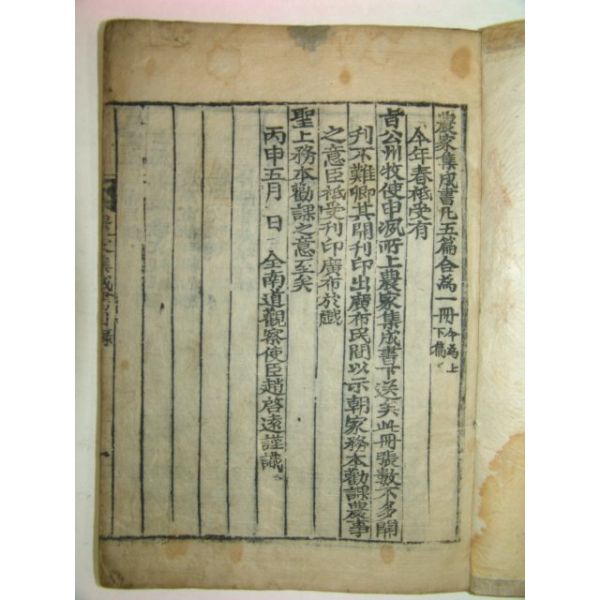 農家集成書凡五篇合為一冊今為上下篇
今年春祗受有
旨公州牧使申洬所上農家集成書下送矣此冊張數不多開
刊不難卿其開刊印出廣布民間以示朝家務本勸課農事
之意臣祗受刊印廣布於戲
聖上務本勸課之意至矣
丙申五月 日 全南道觀察使臣趙啓遠謹識